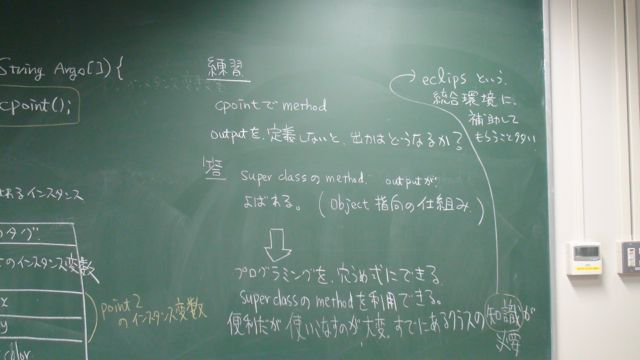 String Args[]){
cpoint();
練習
cpointでmethod
outputを、定義しないと、出力はどうなるか?
答 Super classのmethod. outputが、
よばれる。(Object 指向の仕組み)
プログラミングを、穴うめ式にできる。
superclassのmethodを利用できる。
便利だが、使いこなすのが大変。すでにあるクラスの知識が
必要
eclips という、
統合環境に、
補助して
もらうこと多い
れるインスタンス
のタグ
のインスタンス変数
x
y
color
point2
のインスタンス変数